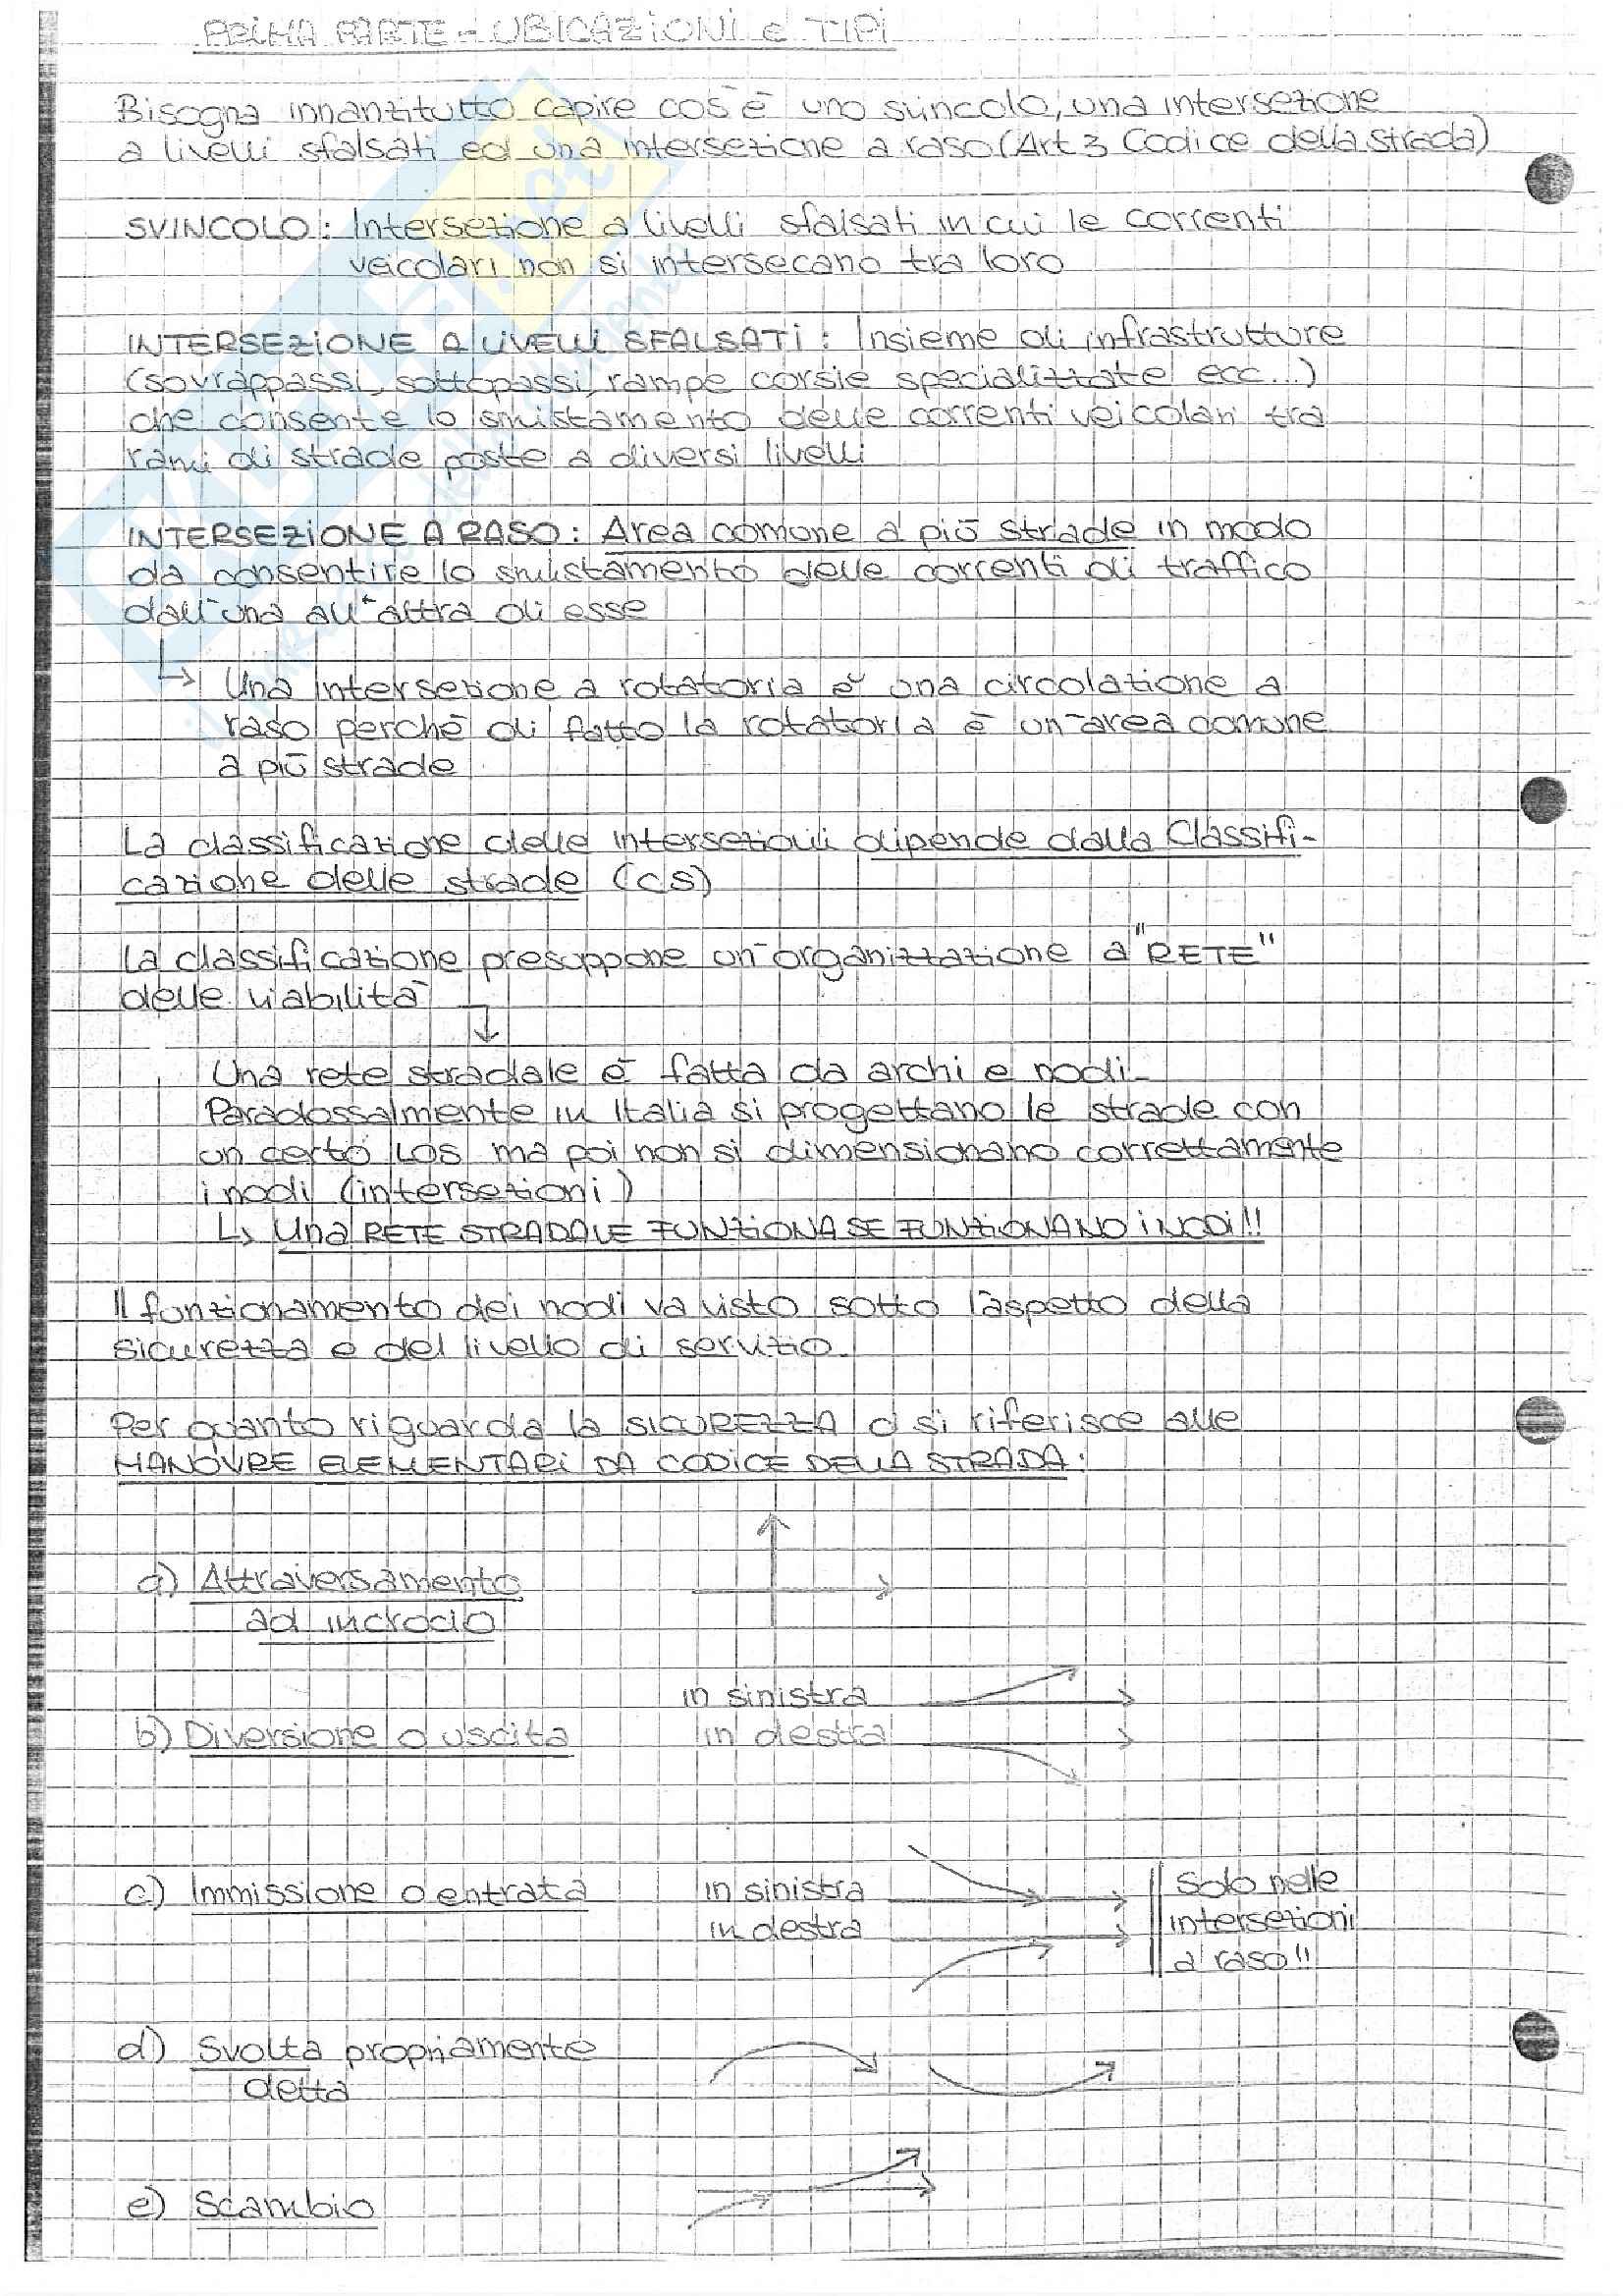 PRIMA PARTE - UBICAZIONI e TIPI
Bisogna innanzitutto capire cos'è uno svincolo, una intersezione
a livelli sfalsati ed una intersezione a raso (Art 3 Codice della strada)
SVINCOLO: Intersezione a livelli sfalsati in cui le correnti
veicolari non si intersecano tra loro
INTERSEZIONE A LIVELLI SFALSATI: Insieme di infrastrutture
(sovrappassi, sottopassi, rampe corsie specializzate ecc...)
che consente lo smistamento delle correnti veicolari tra
rami di strade poste a diversi livelli
INTERSEZIONE A RASO: Area comune a più strade in modo
da consentire lo smistamento delle correnti di traffico
dall'una all'altra di esse
↳ Una intersezione a rotatoria è una circolazione a
raso perché di fatto la rotatoria è un'area comune
a più strade
La classificazione delle intersezioni dipende dalla Classifi-
cazione delle strade (CS)
La classificazione presuppone un'organizzazione a "RETE"
delle viabilità
Una rete stradale è fatta da archi e nodi-
Paradossalmente in Italia si progettano le strade con
un certo LOS ma poi non si dimensionano correttamente
i nodi (intersezioni)
↳ Una RETE STRADALE FUNZIONA SE FUNZIONANO i NODI!!
Il funzionamento dei nodi va visto sotto l'aspetto della
sicurezza e del livello di servizio.
Per quanto riguarda la SICUREZZA ci si riferisce alle
MANOVRE ELEMENTARI DA CODICE DELLA STRADA:
a) Attraversamento
ad incrocio
in sinistra
b) Diversione o uscita in destra
c) Immissione o entrata in sinistra
in destra
Solo nelle
intersezioni
a raso!!
d) Svolta propriamente
detta
e) Scambio